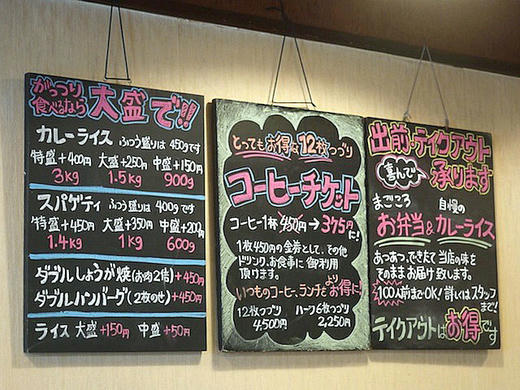 がっつり
食べるなら 大盛で!!
カレーライス ふつう盛りは 450gです
特盛+400円 大盛+250円 中盛+150円
3kg 1.5kg 900g
スパゲティ ふつう盛りは 400gです
特盛+450円 大盛+350円 中盛+200円
1.4kg 1kg 600g
ダブルしょうが焼(お肉2倍)+450円
ダブルハンバーグ(2枚のせ)+450円
ライス 大盛+150円 中盛+50円
とってもお得な12枚つづり
コーヒーチケット
コーヒー1杯 450円→375円に!
1枚450円の金券として、その他
ドリンク、お食事に御利用
頂けます。
いつものコーヒー、ランチをよりお得に!
12枚つづり ハーフ6枚つづり
4,500円 2,250円
出前・テイクアウト
喜んで 承ります
まごころ 自慢の
お弁当&カレーライス
あつあつ、できたて当店の味を
そのままお届け致します。
100人前までOK! 詳しくはスタッフ
まで!
テイクアウトはお得です